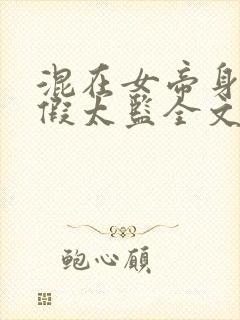 混在女帝身
假太监全文
鲍心愿